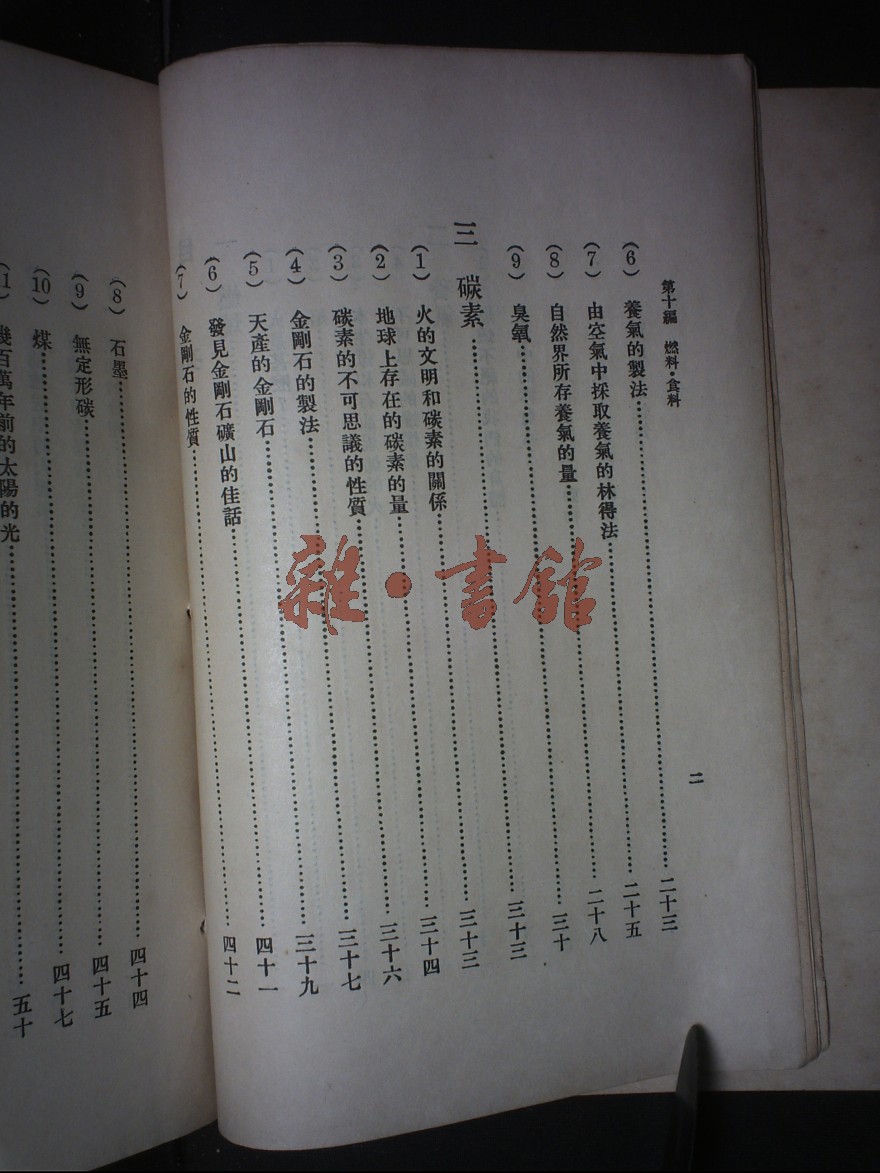 第十編 燃料・食料
二
(6) 養氣的製法……二十三
(7) 由空氣中採取養氣的林得法……二十五
(8) 自然界所存養氣的量……二十八
(9) 臭氧……三十
三 碳素……三十三
(1) 火的文明和碳素的關係……三十三
(2) 地球上存在的碳素的量……三十四
(3) 碳素的不可思議的性質……三十六
(4) 金剛石的製法……三十七
(5) 天產的金剛石……三十九
(6) 發見金剛石礦山的佳話……四十一
(7) 金剛石的性質……四十二
(8) 石墨……四十四
(9) 無定形碳……四十五
(10) 煤……四十七
1) 幾百萬年前的太陽的光……五十
雜・書館